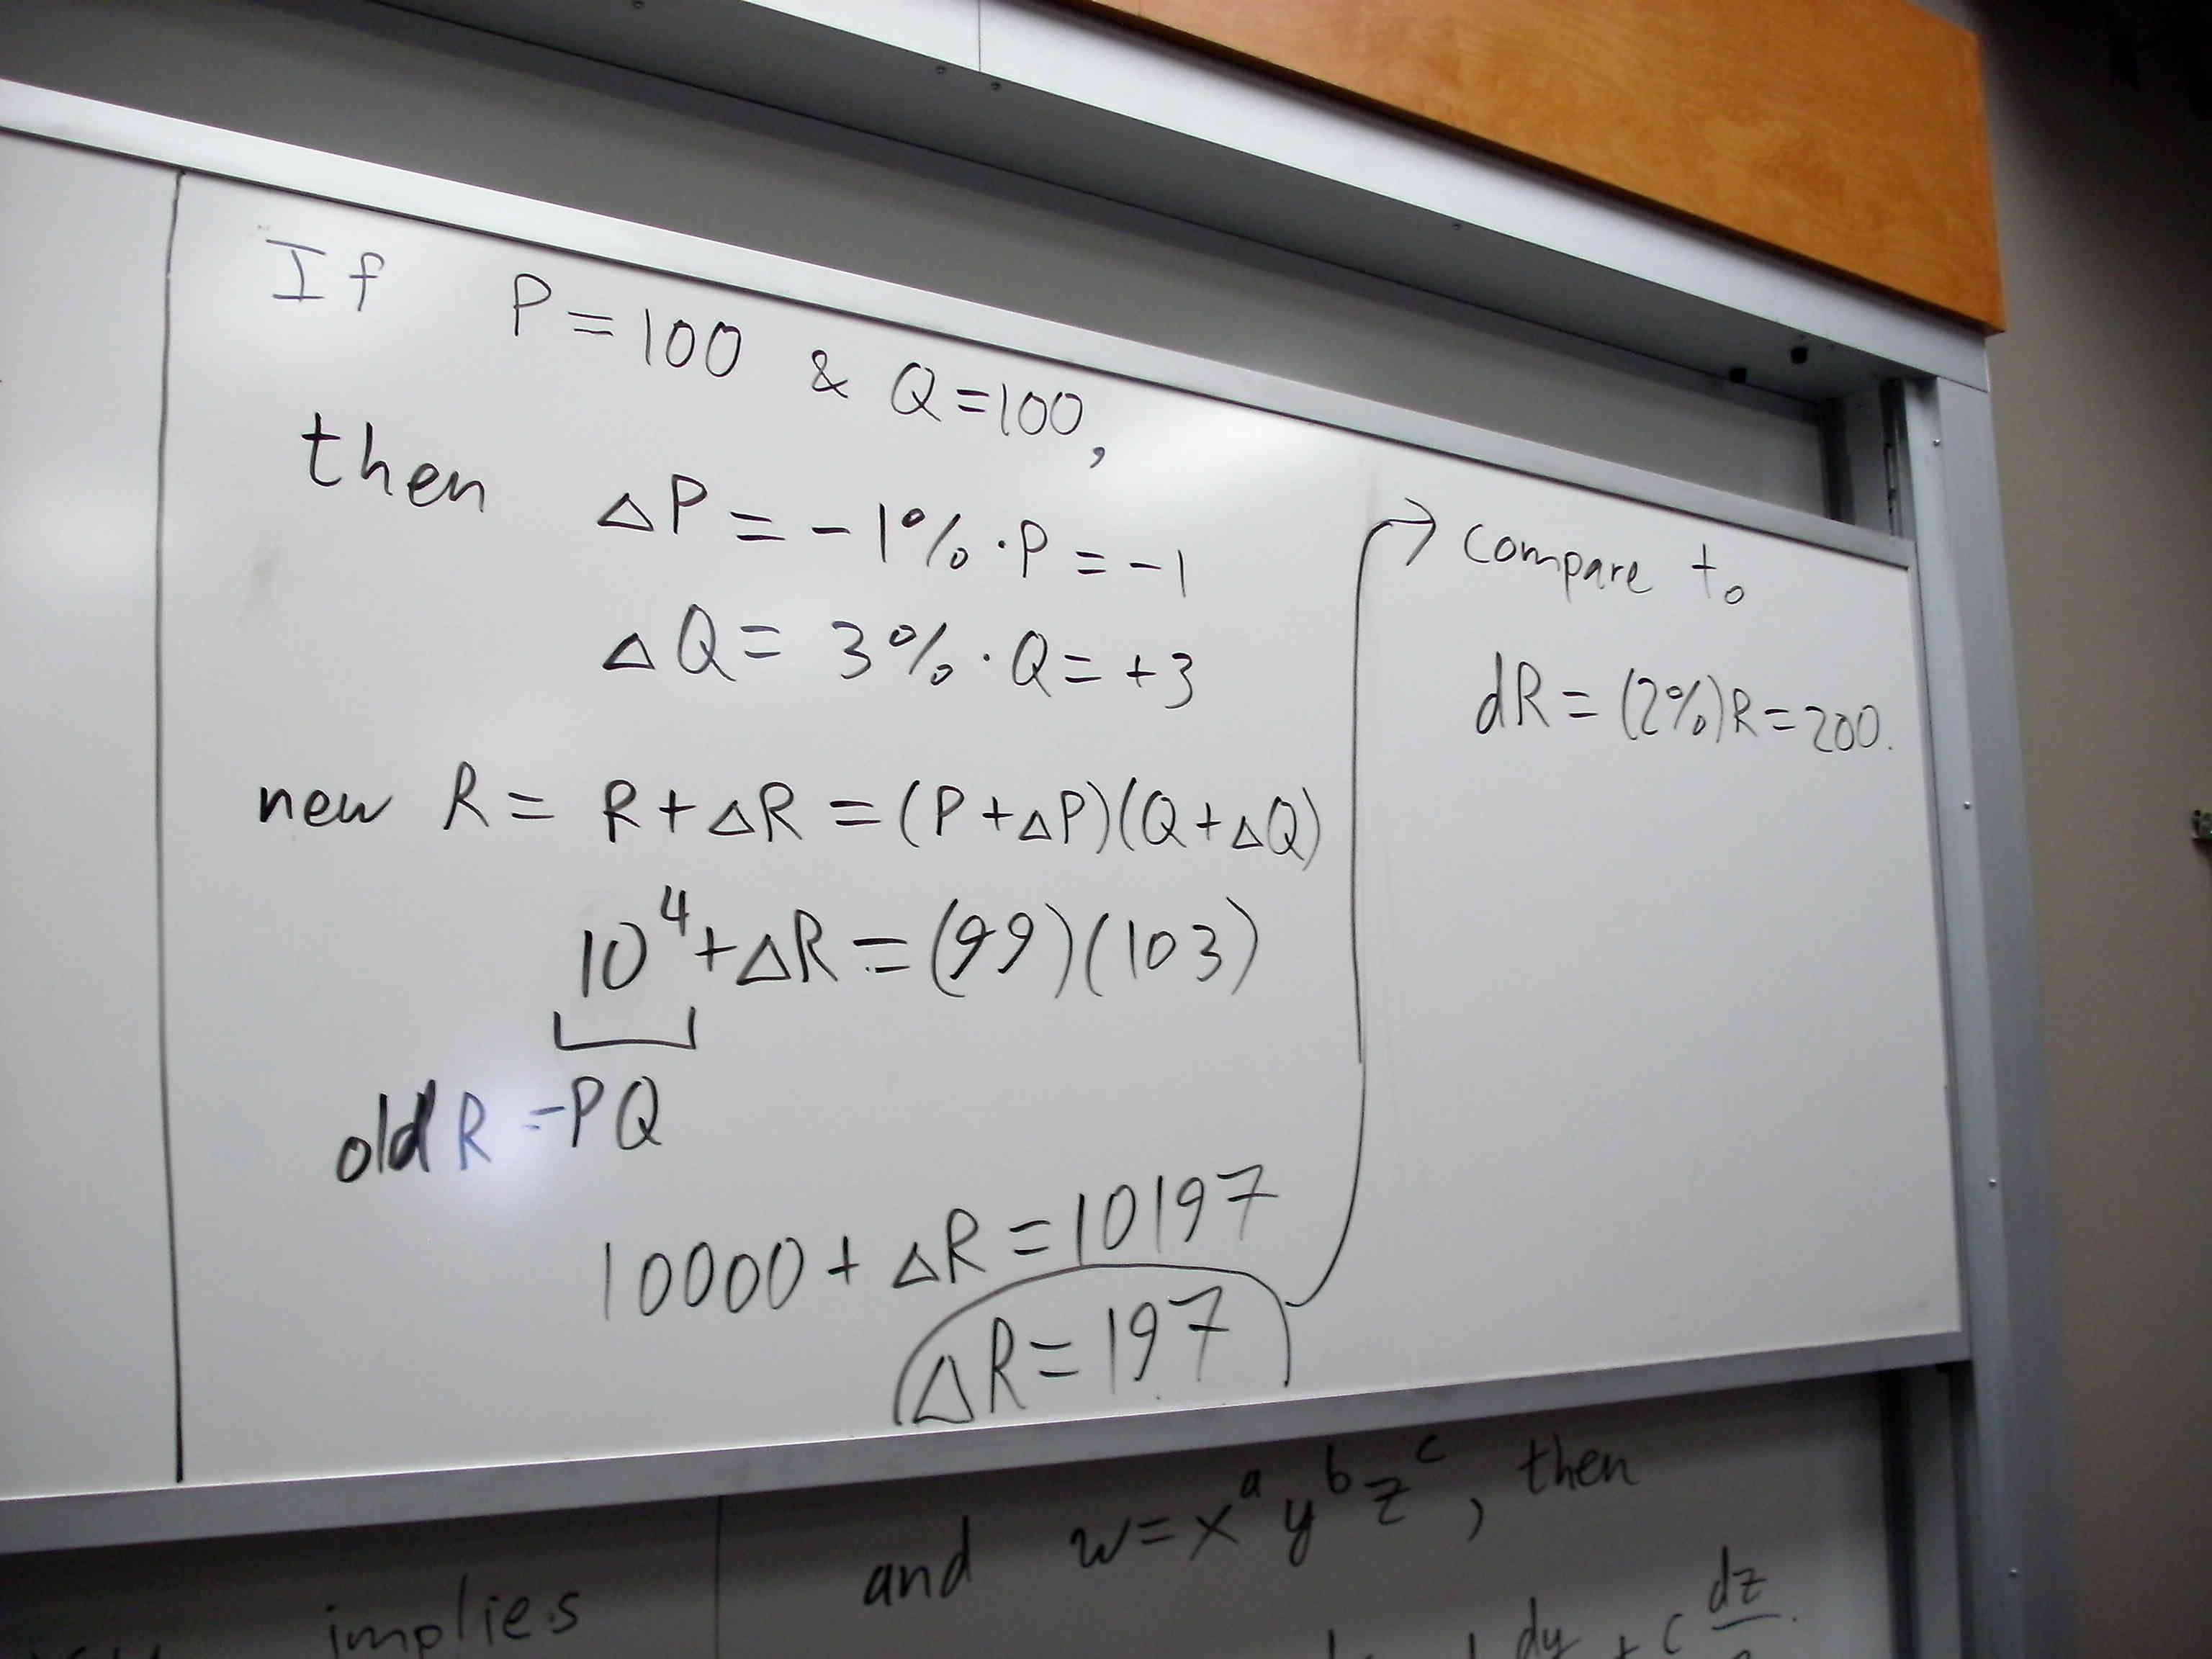 If P = 100 & Q = 100,
then ΔP = -1% · P = -1
ΔQ = 3% · Q = +3
new R = R + ΔR = (P + ΔP)(Q + ΔQ)
10⁴ + ΔR = (99)(103)
old R = PQ
10000 + ΔR = 10197
ΔR = 197
→ compare to
dR = (2%)R = 200.
implies
and w = xᵃ yᵇ zᶜ, then
dy + c dz